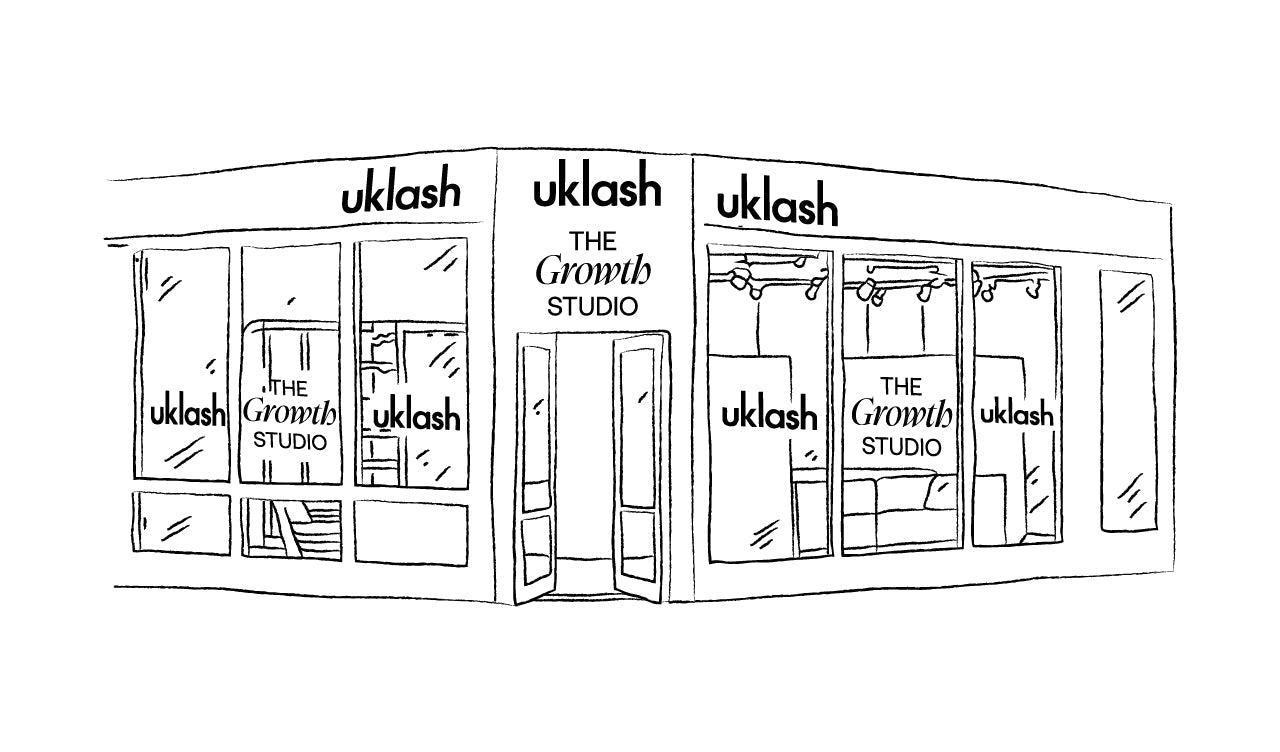 uklash
uklash
THE
Growth
STUDIO
uklash
uklash
THE
Growth
STUDIO
uklash
uklash
THE
Growth
STUDIO
uklash